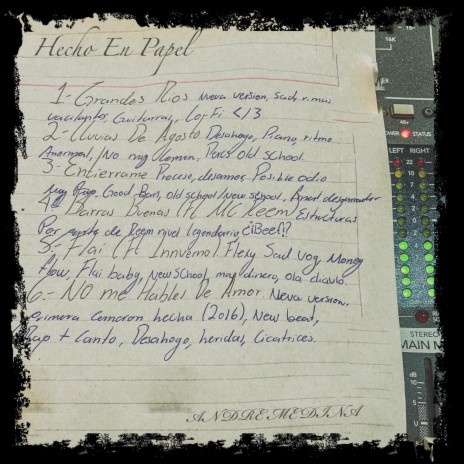 Hecho En Papel
1.- Grandes Rios Nueva version, Sad, rimas
Guitarras, Lo-Fi. </3
2.- Lluvias De Agosto Desahogo, Piano, ritmo
Anormal, /No muy Comun, Pero old School.
3.- Entierrame Proceso, desamor, Posible odio
Muy Good, Bars, old school/New school, Amor desgarrador
4.- Barras Buenas (ft. MC Reem) Estructuras
Por parte de Reem nivel legendario, El Beef!?
5.- Flai (Ft Innverno) Flexy Sad Money
flow, Flai baby, New School, mas dinero, ola diavlo.
6.- NO me Hables De Amor. Nueva version.
Primera cancion hecha (2016), New beat,
Rap + Canto, Desahogo, heridas, Cicatrices.
ANDRE MEDINA
16K
48v
POWER
STATUS
LEFT RIGHT
STEREO
MAIN M